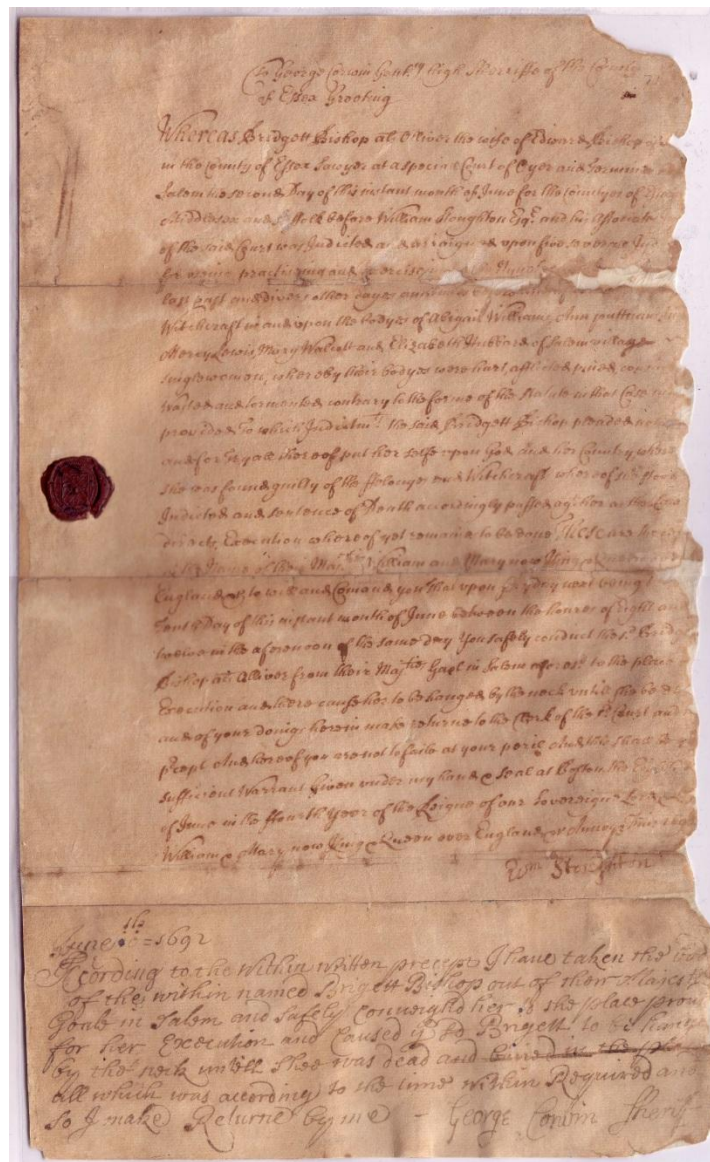 To George Corwin Gent^m high Sherriffe of the County
of Essex Greeting
Whereas Bridgett Bishop al^s Olliver the wife of Edward Bishop
in the County of Essex Sawyer at a speciall Court of Oyer and Terminer
Salem the second Day of this instant month of June for the Countyes of Essex
Middlesex and Suffolk before William Stoughton Esq^r. and his Associates
of the said Court was Indicted and arraigned upon five severall
for useing practiseing and exerciseing
last past and divers other dayes
Witchcraft in and upon the bodyes of Abigail Williams Ann puttnam
Mercy Lewis Mary Walcott and Elizabeth Hubbard of Salem village
singlewomen, whereby their bodyes were hurt, afflicted pined
wasted and tormented contrary to the forme of the Statute in that Case
provided To which Indictm^ts the said Bridgett Bishop pleaded
and for Tryall thereof put her selfe upon God and her Country where
she was found guilty of the ffelonyes and Witchcrafts whereof she stood
Indicted and sentence of Death accordingly passed ag^t her as the Law
directs, Execution whereof yet remaines to be done These are
in the Name of their Maj^ties William and Mary now King & Queen
England &c. to will and Comand you That upon fryday next being
Tenth Day of this instant month of June between the houres of Eight and
twelve in the aforenoon of the same day You safely conduct the s^d Bridgett
Bishop al^s Olliver from their Maj^ties Gaol in Salem afores^d to the place
Execution and there cause her to be hanged by the neck untill she be
and of your doings herein make returne to the Clerk of the s^d Court and
p^rcept And hereof you are not to faile at your peril And this shall be
sufficient Warrant Given under my hand & seal at Boston the Eighth
of June in the ffourth Year of the Reigne of our Sovereigne Lord &
William & Mary now King & Queen over England &c Annoq^e
W^m Stoughton
June 10^th = 1692
According to the Within Written precept I have taken the
of the within named Brigett Bishop out of their Majesties
Goale in Salem and Safely Conveighd her to the place
for her Execution and Caused y^e s^d Brigett to be hang
by the neck untill Shee was dead and buried in the place
all which was according to the time within Required and
So I make Returne by me - George Corwin Sheriff